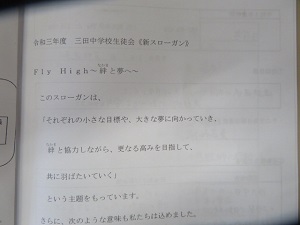 令和三年度　三田中学校生徒会《新スローガン》
Fly High～絆と夢へ～
このスローガンは、
「それぞれの小さな目標や、大きな夢に向かっていき、
絆と協力しながら、更なる高みを目指して、
共に羽ばたいていく」
という主題をもっています。
さらに、次のような意味も私たちは込めました。